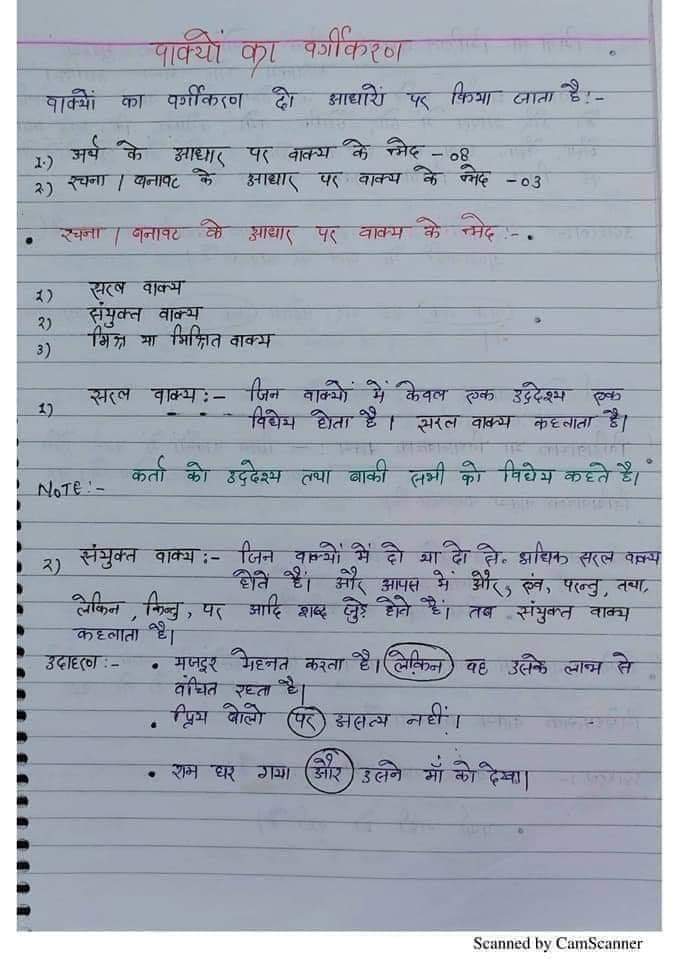 वाक्यों का वर्गीकरण
वाक्यों का वर्गीकरण दो आधारों पर किया जाता है:-
1.) अर्थ के आधार पर वाक्य के भेद - 08
2) रचना / बनावट के आधार पर वाक्य के भेद - 03
• रचना / बनावट के आधार पर वाक्य के भेद:- •
1) सरल वाक्य
2) संयुक्त वाक्य
3) मिश्र या मिश्रित वाक्य
1) सरल वाक्य :- जिन वाक्यों में केवल एक उद्देश्य एक
विधेय होता है। सरल वाक्य कहलाता है।
NOTE:- कर्ता को उद्देश्य तथा बाकी सभी को विधेय कहते है।
2) संयुक्त वाक्य :- जिन वाक्यों में दो या दो से अधिक सरल वाक्य
होते हैं। और आपस में और, एवं, परन्तु, तथा,
लेकिन, किन्तु, पर आदि शब्द जुड़े होते हैं। तब संयुक्त वाक्य
कहलाता है।
उदाहरण :- • मजदूर मेहनत करता है। लेकिन वह उसके लाभ से
वंचित रहता है।
• प्रिय बोलो पर असत्य नहीं।
• राम घर गया और उसने माँ को देखा।
Scanned by CamScanner